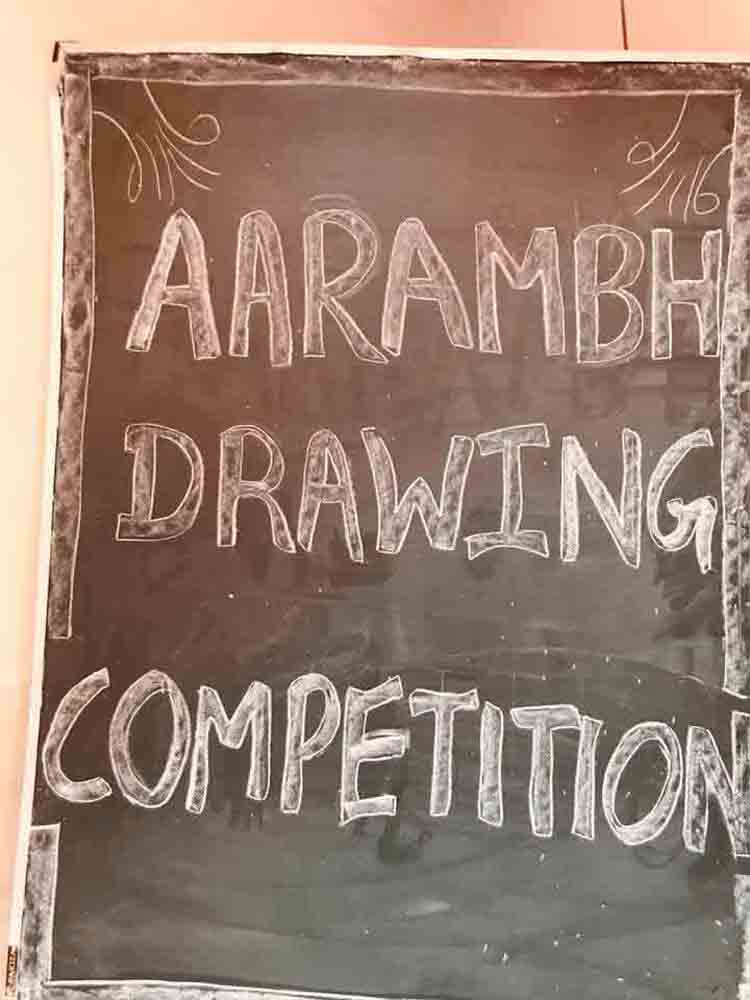 AARAMBH
DRAWING
COMPETITION